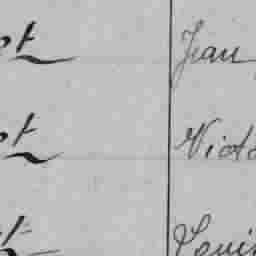 ot Jean
ot Victo
t Louis